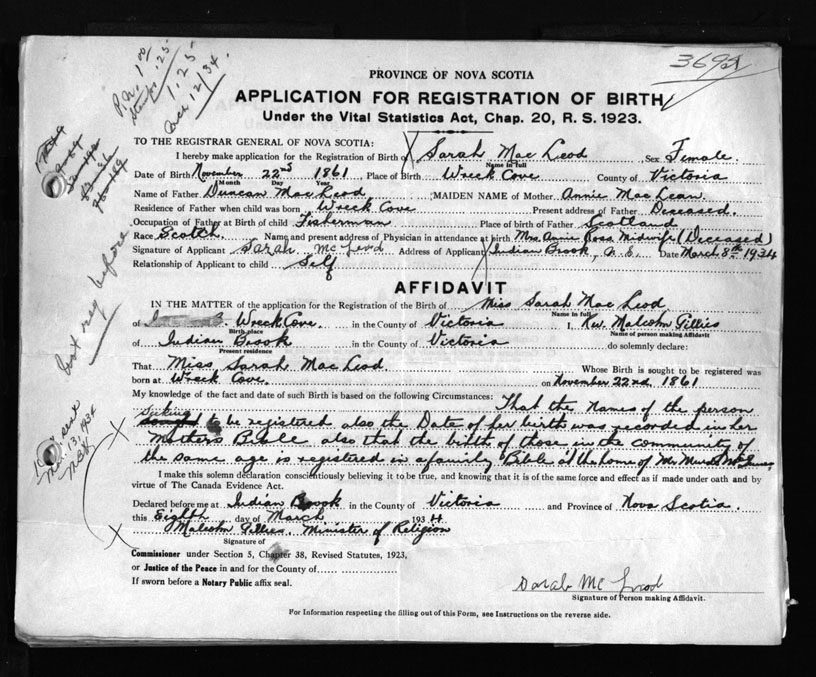 P.N. 1.00
Stamps .25
1.25
Mch 12/34.
369 1/2
PROVINCE OF NOVA SCOTIA
APPLICATION FOR REGISTRATION OF BIRTH
Under the Vital Statistics Act, Chap. 20, R. S. 1923.
TO THE REGISTRAR GENERAL OF NOVA SCOTIA:
I hereby make application for the Registration of Birth of Sarah Mac Leod Sex Female.
Name in full
Date of Birth November 22nd 1861 Place of Birth Wreck Cove County of Victoria
Month Day Year
Name of Father Duncan Mac Leod MAIDEN NAME of Mother Annie Mac Lean.
Residence of Father when child was born Wreck Cove Present address of Father Deseased.
Occupation of Father at Birth of child Fisherman Place of birth of Father Scotland
Race Scotch. Name and present address of Physician in attendance at birth Mrs. Annie Ross Midwife (Deceased)
Signature of Applicant Sarah Mc Leod Address of Applicant Indian Brook, N.S. Date March 8th 1934
Relationship of Applicant to child Self
AFFIDAVIT
IN THE MATTER of the application for the Registration of the Birth of Miss Sarah Mac Leod
Name in full
of Wreck Cove. in the County of Victoria I, Rev. Malcolm Gillies
Birth place Name of person making Affidavit
of Indian Brook in the County of Victoria do solemnly declare:
Present residence
That Miss Sarah Mac Leod. Whose Birth is sought to be registered was
born at Wreck Cove. on November 22nd 1861
My knowledge of the fact and date of such Birth is based on the following Circumstances: That the names of the person
seeking to be registered also the Date of her birth was recorded in her
Mothers Bible also that the birth of those in the community of
the same age is registered in a family Bible at the home of Mr
I make this solemn declaration conscientiously believing it to be true, and knowing that it is of the same force and effect as if made under oath and by
virtue of The Canada Evidence Act.
Declared before me at Indian Brook in the County of Victoria and Province of Nova Scotia.
this Eighth day of March 1934
Malcolm Gillies. Minister of Religion
Signature of
Commissioner under Section 5, Chapter 38, Revised Statutes, 1923,
or Justice of the Peace in and for the County of
If sworn before a Notary Public affix seal.
Sarah Mc Leod
Signature of Person making Affidavit.
For Information respecting the filling out of this Form, see Instructions on the reverse side.
not reg before
sent
13, 1934